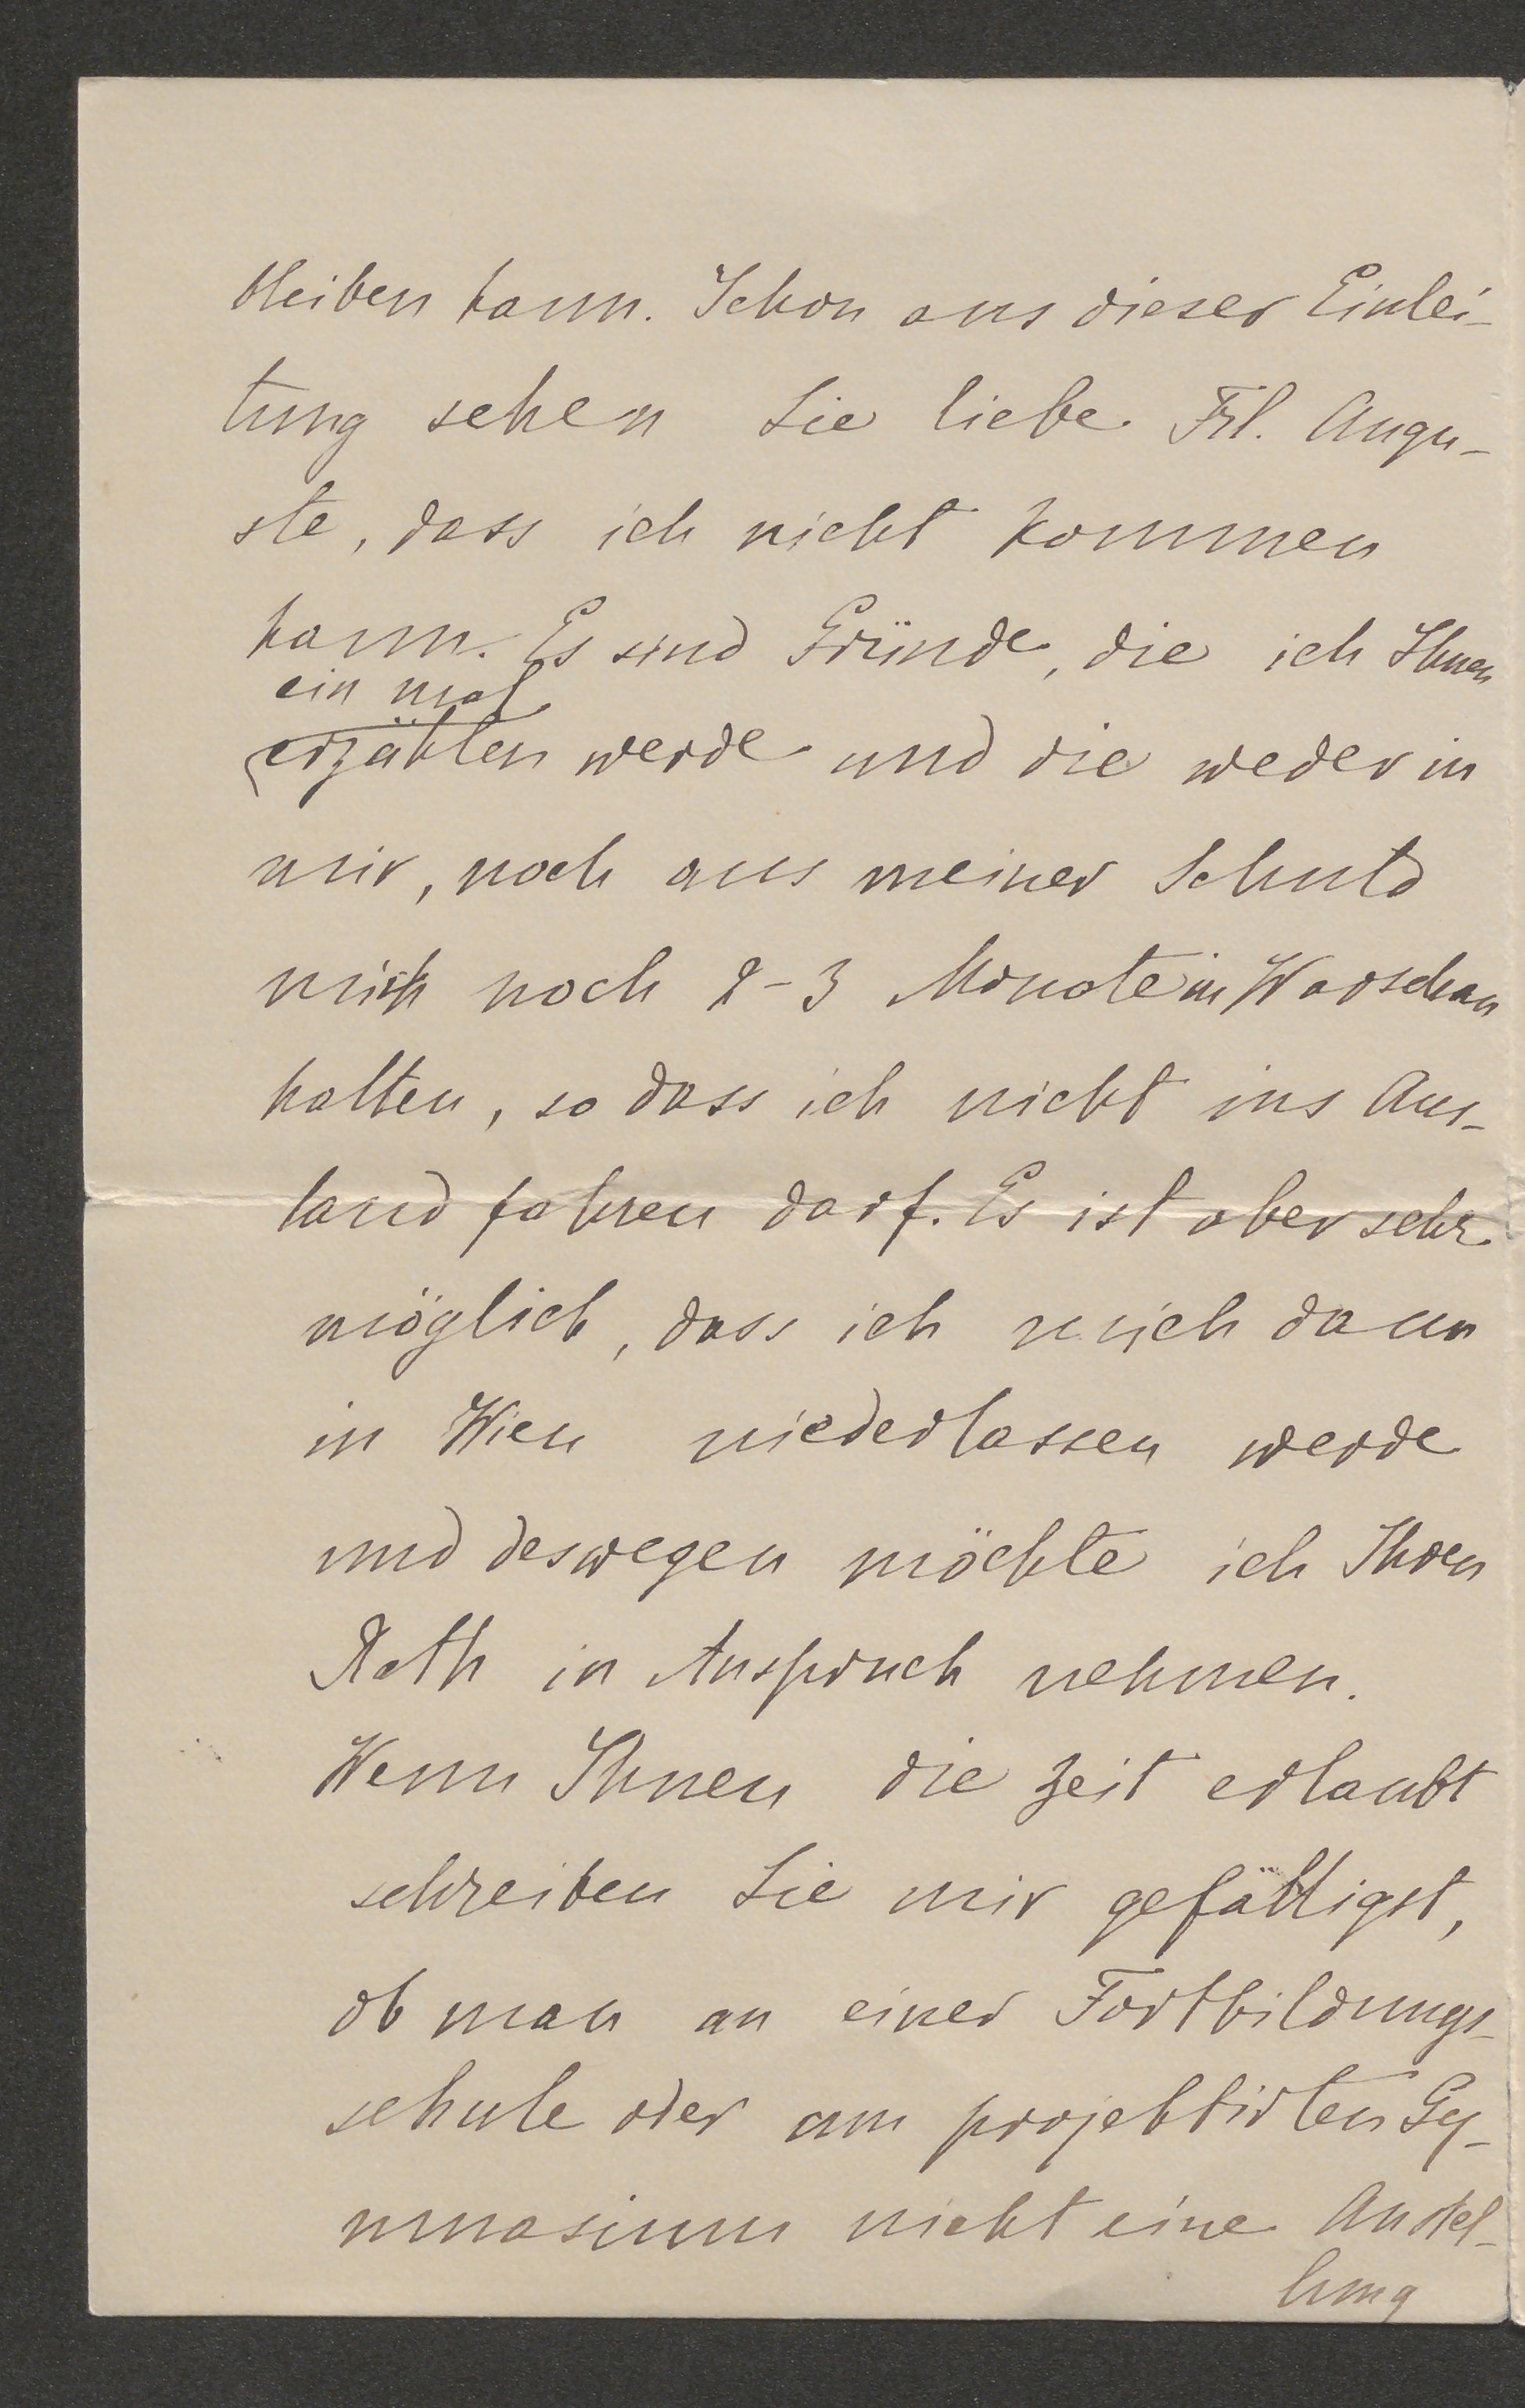 bleiben kann. Schon aus dieser Einlei-
tung sehen Sie liebe Frl. Augu-
ste, dass ich nicht kommen
kann. Es sind Gründe, die ich Ihnen
ein mal
erzählen werde und die weder in
mir, noch aus meiner Schuld
mich noch 2-3 Monate in Warschau
halten, so dass ich nicht ins Aus-
land fahren darf. Es ist aber sehr
möglich, dass ich mich dann
in Wien niederlassen werde
und deswegen möchte ich Ihren
Rath in Anspruch nehmen.
Wenn Ihnen die Zeit erlaubt
schreiben Sie mir gefälligst,
ob man an einer Fortbildungs-
schule oder am projektirten Gy-
mnasium nicht eine Anstel-
lung